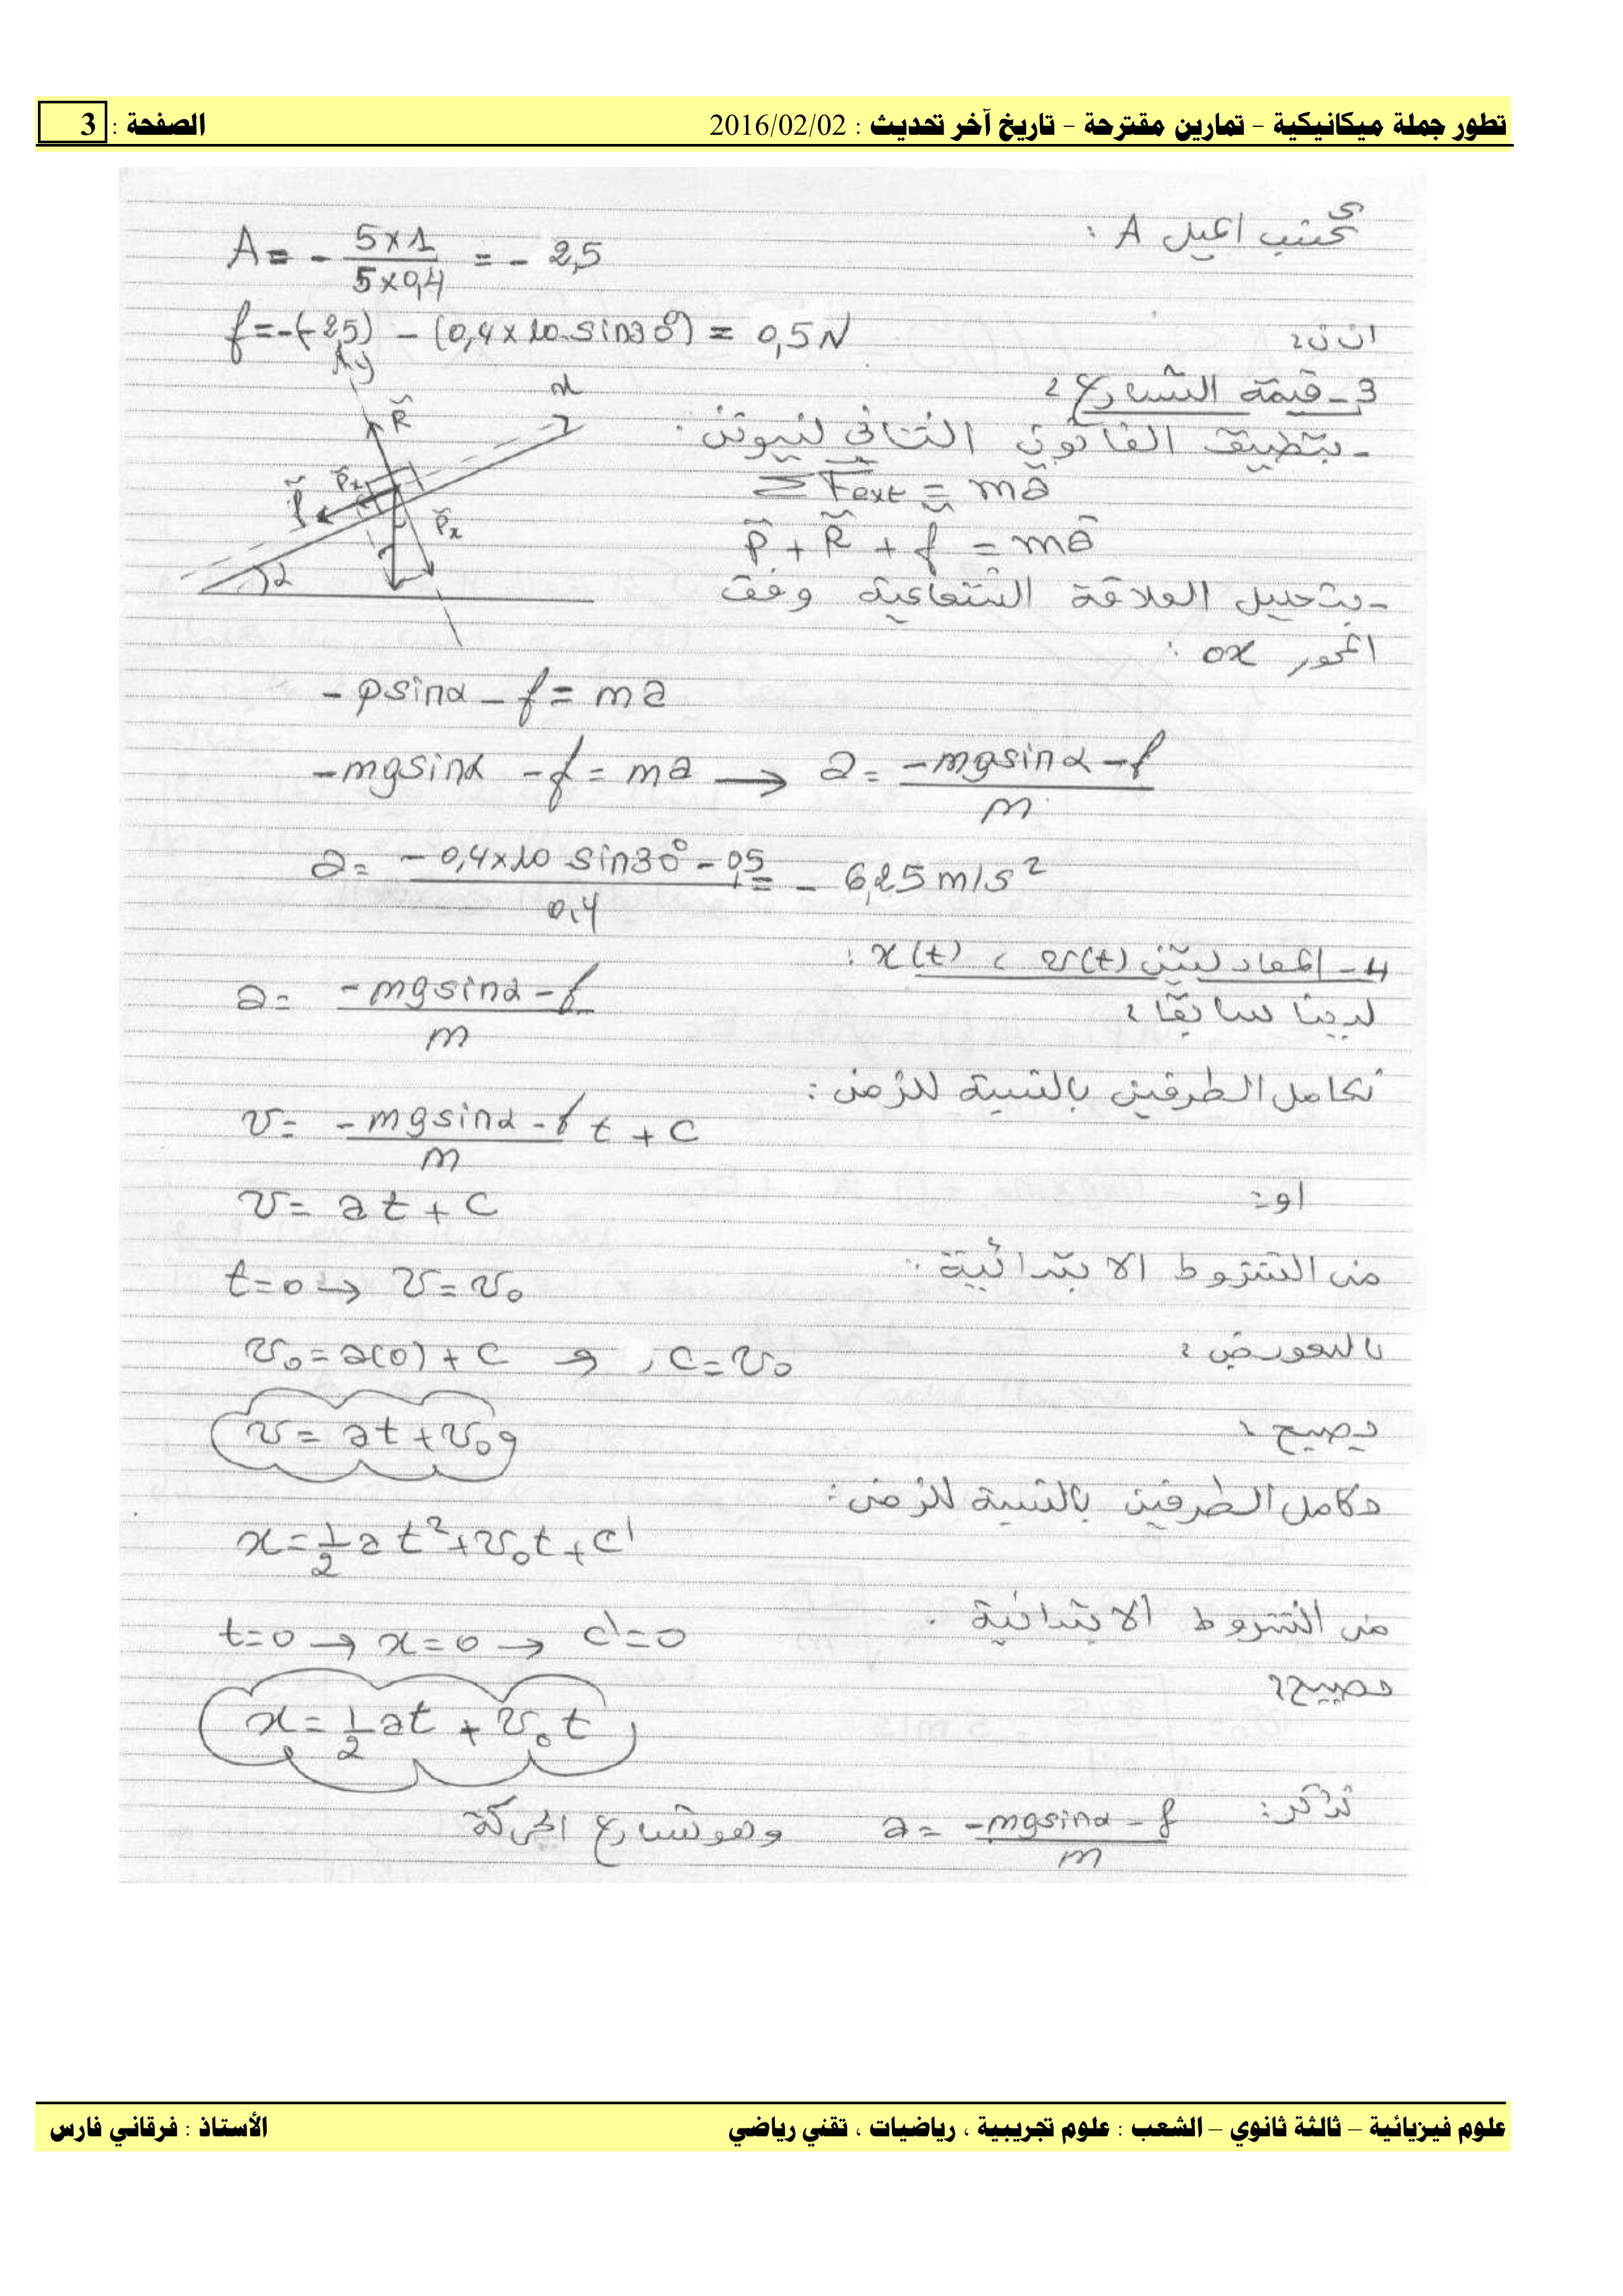 تطور جملة ميكانيكية – تمارين مقترحة – تاريخ آخر تحديث : 2016/02/02 الصفحة : 3
نحسب الميل A :
A = - 5×1 / 5×0,4 = - 2,5
اذن :
f = -(-2,5) - (0,4×10 sin30°) = 0,5 N
3 - قيمة التسارع :
- بتطبيق القانون الثاني لنيوتن :
ΣF⃗ext = ma⃗
P⃗ + R⃗ + f⃗ = ma⃗
- بتحليل العلاقة الشعاعية وفق
المحور ox :
y
x
R⃗
P⃗x
f⃗
P⃗x
α
- p sinα - f = ma
- mg sinα - f = ma → a = -mg sinα - f / m
a = - 0,4×10 sin30° - 0,5 / 0,4 = - 6,25 m/s²
4 - المعادلتين x(t) ، v(t) :
لدينا سابقا :
a = -mg sinα - f / m
نكامل الطرفين بالنسبة للزمن :
v = -mg sinα - f / m t + C
او :
v = at + C
من الشروط الابتدائية :
t=0 → v = v₀
بالتعويض :
v₀ = a(0) + C → C = v₀
يصبح :
v = at + v₀
نكامل الطرفين بالنسبة للزمن :
x = 1/2 a t² + v₀t + C'
من الشروط الابتدائية :
t=0 → x=0 → C'=0
يصبح :
x = 1/2 at + v₀t
نذكر : a = -mg sinα - f / m وهو تسارع الحركة
علوم فيزيائية – ثالثة ثانوي – الشعب : علوم تجريبية ، رياضيات ، تقني رياضي الأستاذ : فرقاني فارس